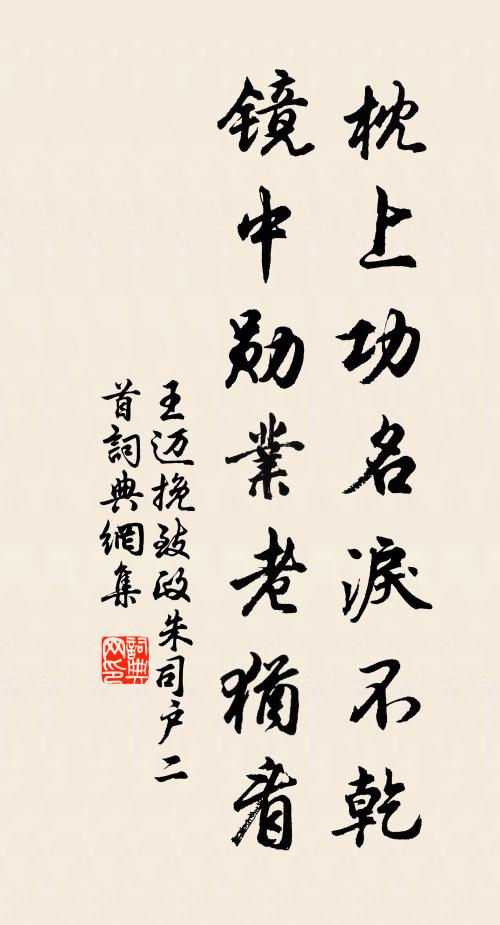 枕上功名淚不乾
鏡中勛業老猶看
王迈挽致政朱司户二
首詞典網集
詞典網印